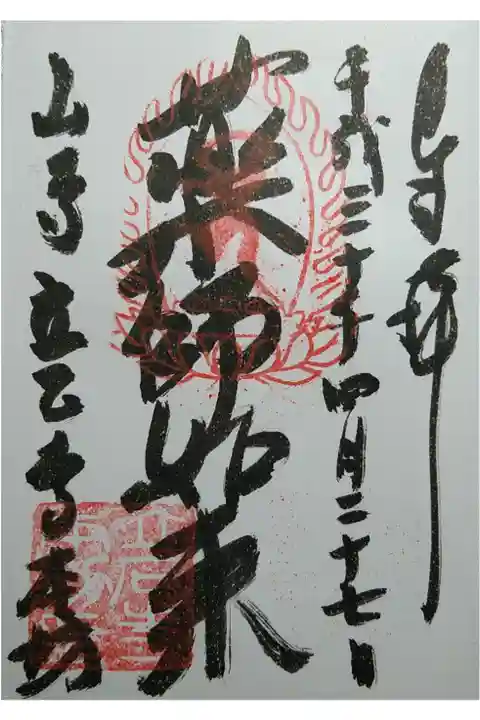 奉拝
平成三十年 四月二十七日
薬師如来
山寺 立石寺本坊